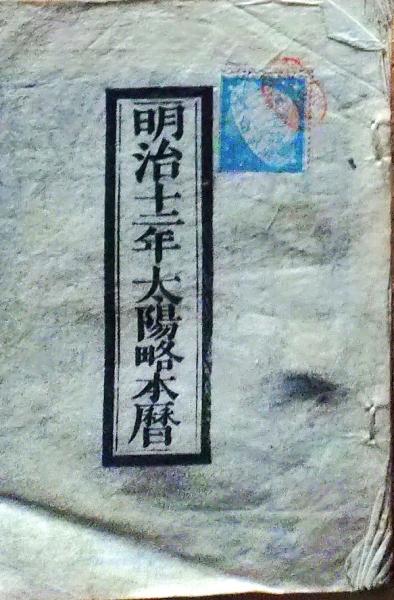 明治十二年太陽略本暦